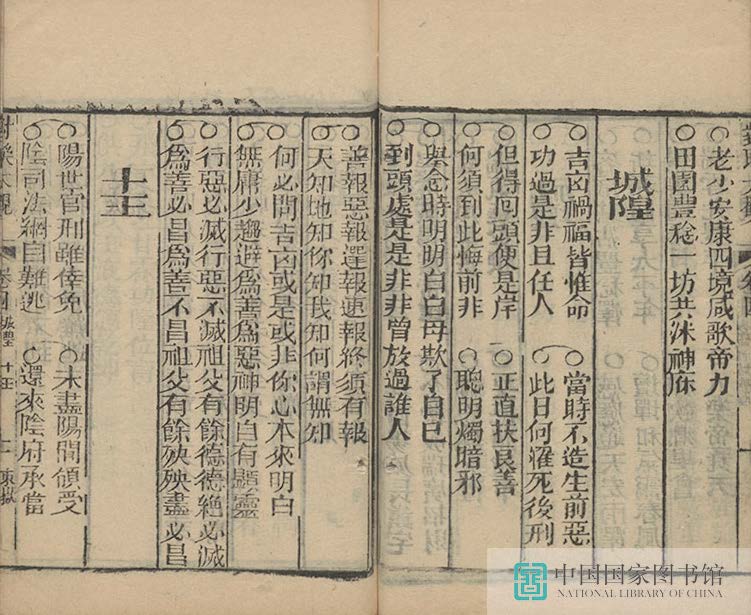 老少安康四境咸歌帝力
田園豊稔一坊共沐神庥
城隍
吉凶禍福皆惟命
功過是非且任人
當時不造生前惡
此日何罹死後刑
但得回頭便是岸
何須到此悔前非
正直扶良善
聰明燭暗邪
舉念時明明白白毋欺了自己
到頭處是是非非曾放過誰人
善報惡報遲報速報終須有報
天知地知你知我知何謂無知
何必問吉凶或是或非你心本來明白
無庸少趨避為善為惡神明自有顯靈
行惡必滅行惡不滅祖父有餘德德絶必滅
為善必昌為善不昌祖父有餘殃殃盡必昌
十王
陽世官刑雖倖免
陰司法網自難逃
未盡陽間領受
還來陰府承當
卷四
城隍
十王
中国国家图书馆
NATIONAL LIBRARY OF CHINA